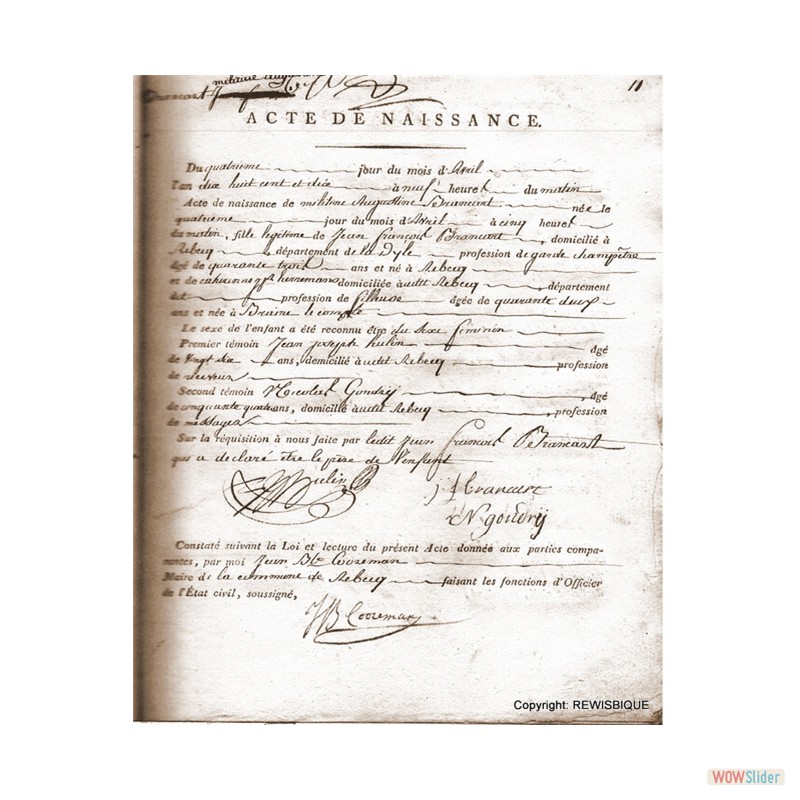 11
ACTE DE NAISSANCE.
Du quatrieme jour du mois d'Avril
l'an dix huit cent et dix à neuf heures du matin
Acte de naissance de Augustine Brancart née le
quatrieme jour du mois d'Avril à cinq heures
du matin, fille legitime de Jean François Brancart, domicilié à
Rebecq, département de la Dyle profession de garde champêtre
âgé de quarante trois ans et né à Rebecq
et de herremans domiciliée audit Rebecq, département
profession de fileuse âgée de quarante deux
ans et née à Braine le comte
Le sexe de l'enfant a été reconnu être du sexe feminin
Premier témoin Jean Joseph hulin âgé
de Vingt six ans, domicilié audit Rebecq profession
de
Second témoin Nicolas Gondry, âgé
de cinquante quatre ans, domicilié audit Rebecq, profession
de messager
Sur la réquisition à nous faite par ledit Jean François Brancart
qui a declaré être le père de l'enfant
Hulin
J f Brancart
N gondry
Constaté suivant la Loi et lecture du présent Acte donnée aux parties compa-
rantes, par moi Jean Bte Cooreman
Maire de la commune de Rebecq faisant les fonctions d'Officier
de l'État civil, soussigné,
JB Cooreman
Copyright: REWISBIQUE
WOWSlider